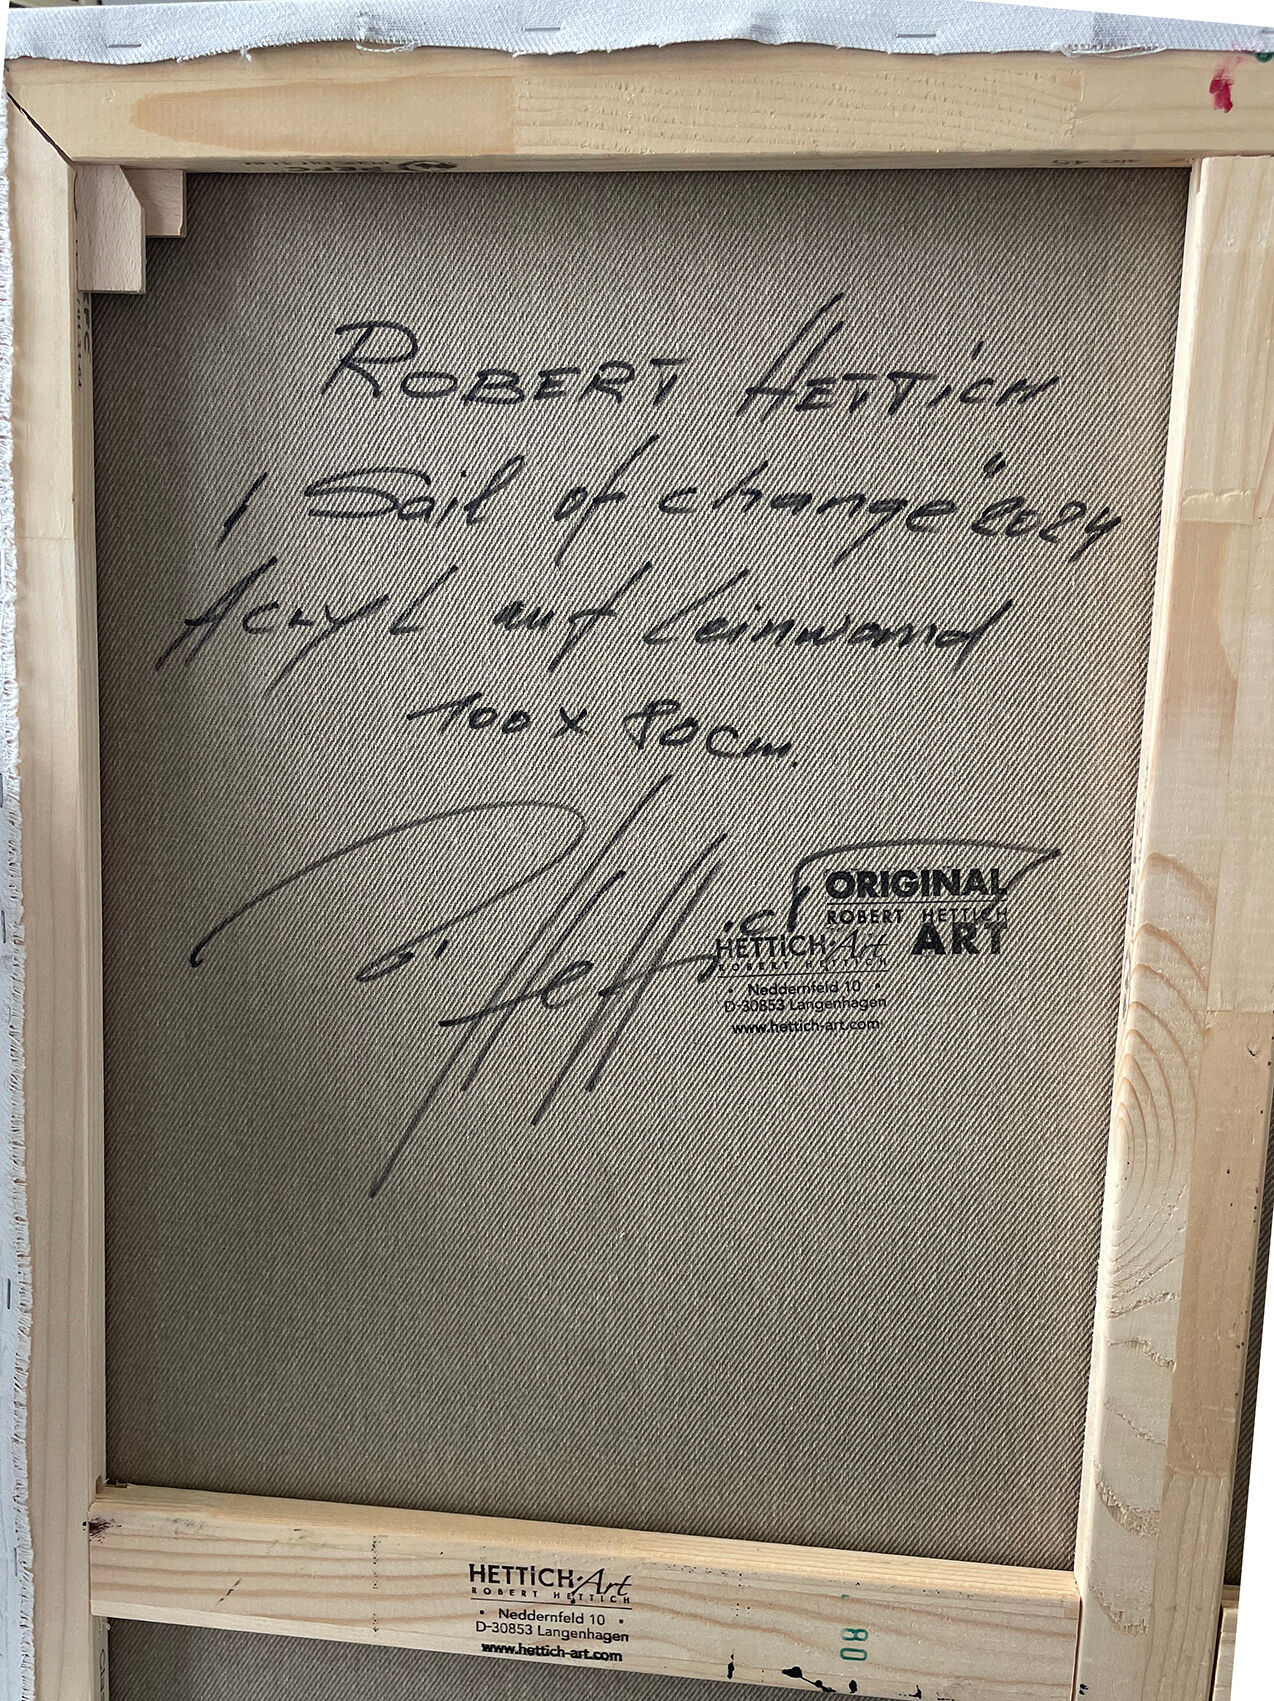 ROBERT HETTiCH
, Sail of change" 2024
Acryl auf Leinwand
100 x 80 cm.
R. Hettich
ORIGINAL
ROBERT HETTICH
ART
HETTiCH·Art
ROBERT HETTICH
• Neddernfeld 10 •
D-30853 Langenhagen
www.hettich-art.com
HETTiCH·Art
ROBERT HETTICH
• Neddernfeld 10 •
D-30853 Langenhagen
www.hettich-art.com
80